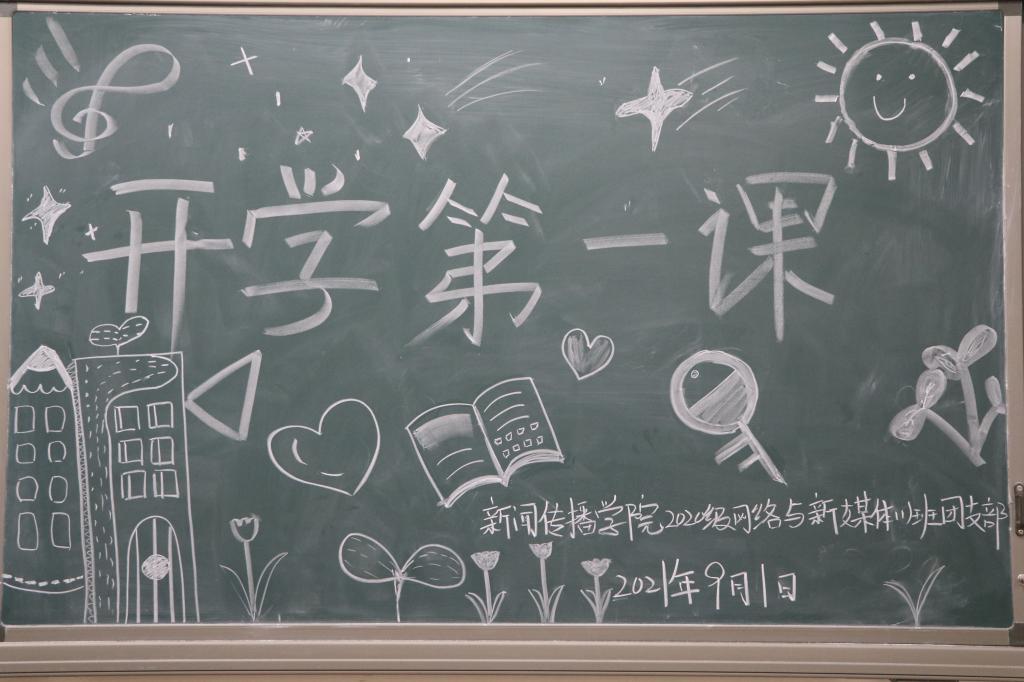 开学第一课
新闻传播学院2020级网络与新媒体(1)班团支部
2021年9月1日